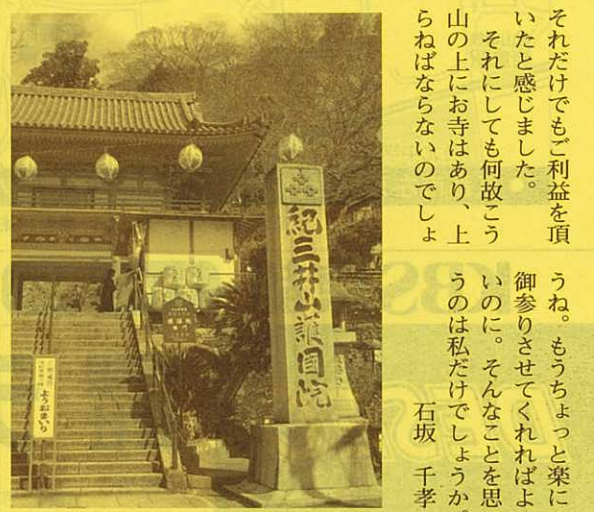 それだけでもご利益を頂
いたと感じました。
それにしても何故こう
山の上にお寺はあり、上
らねばならないのでしょ
うね。もうちょっと楽に
御参りさせてくれればよ
いのに。そんなことを思
うのは私だけでしょうか。
石坂　千孝
紀三井山護国院
ようおまいり